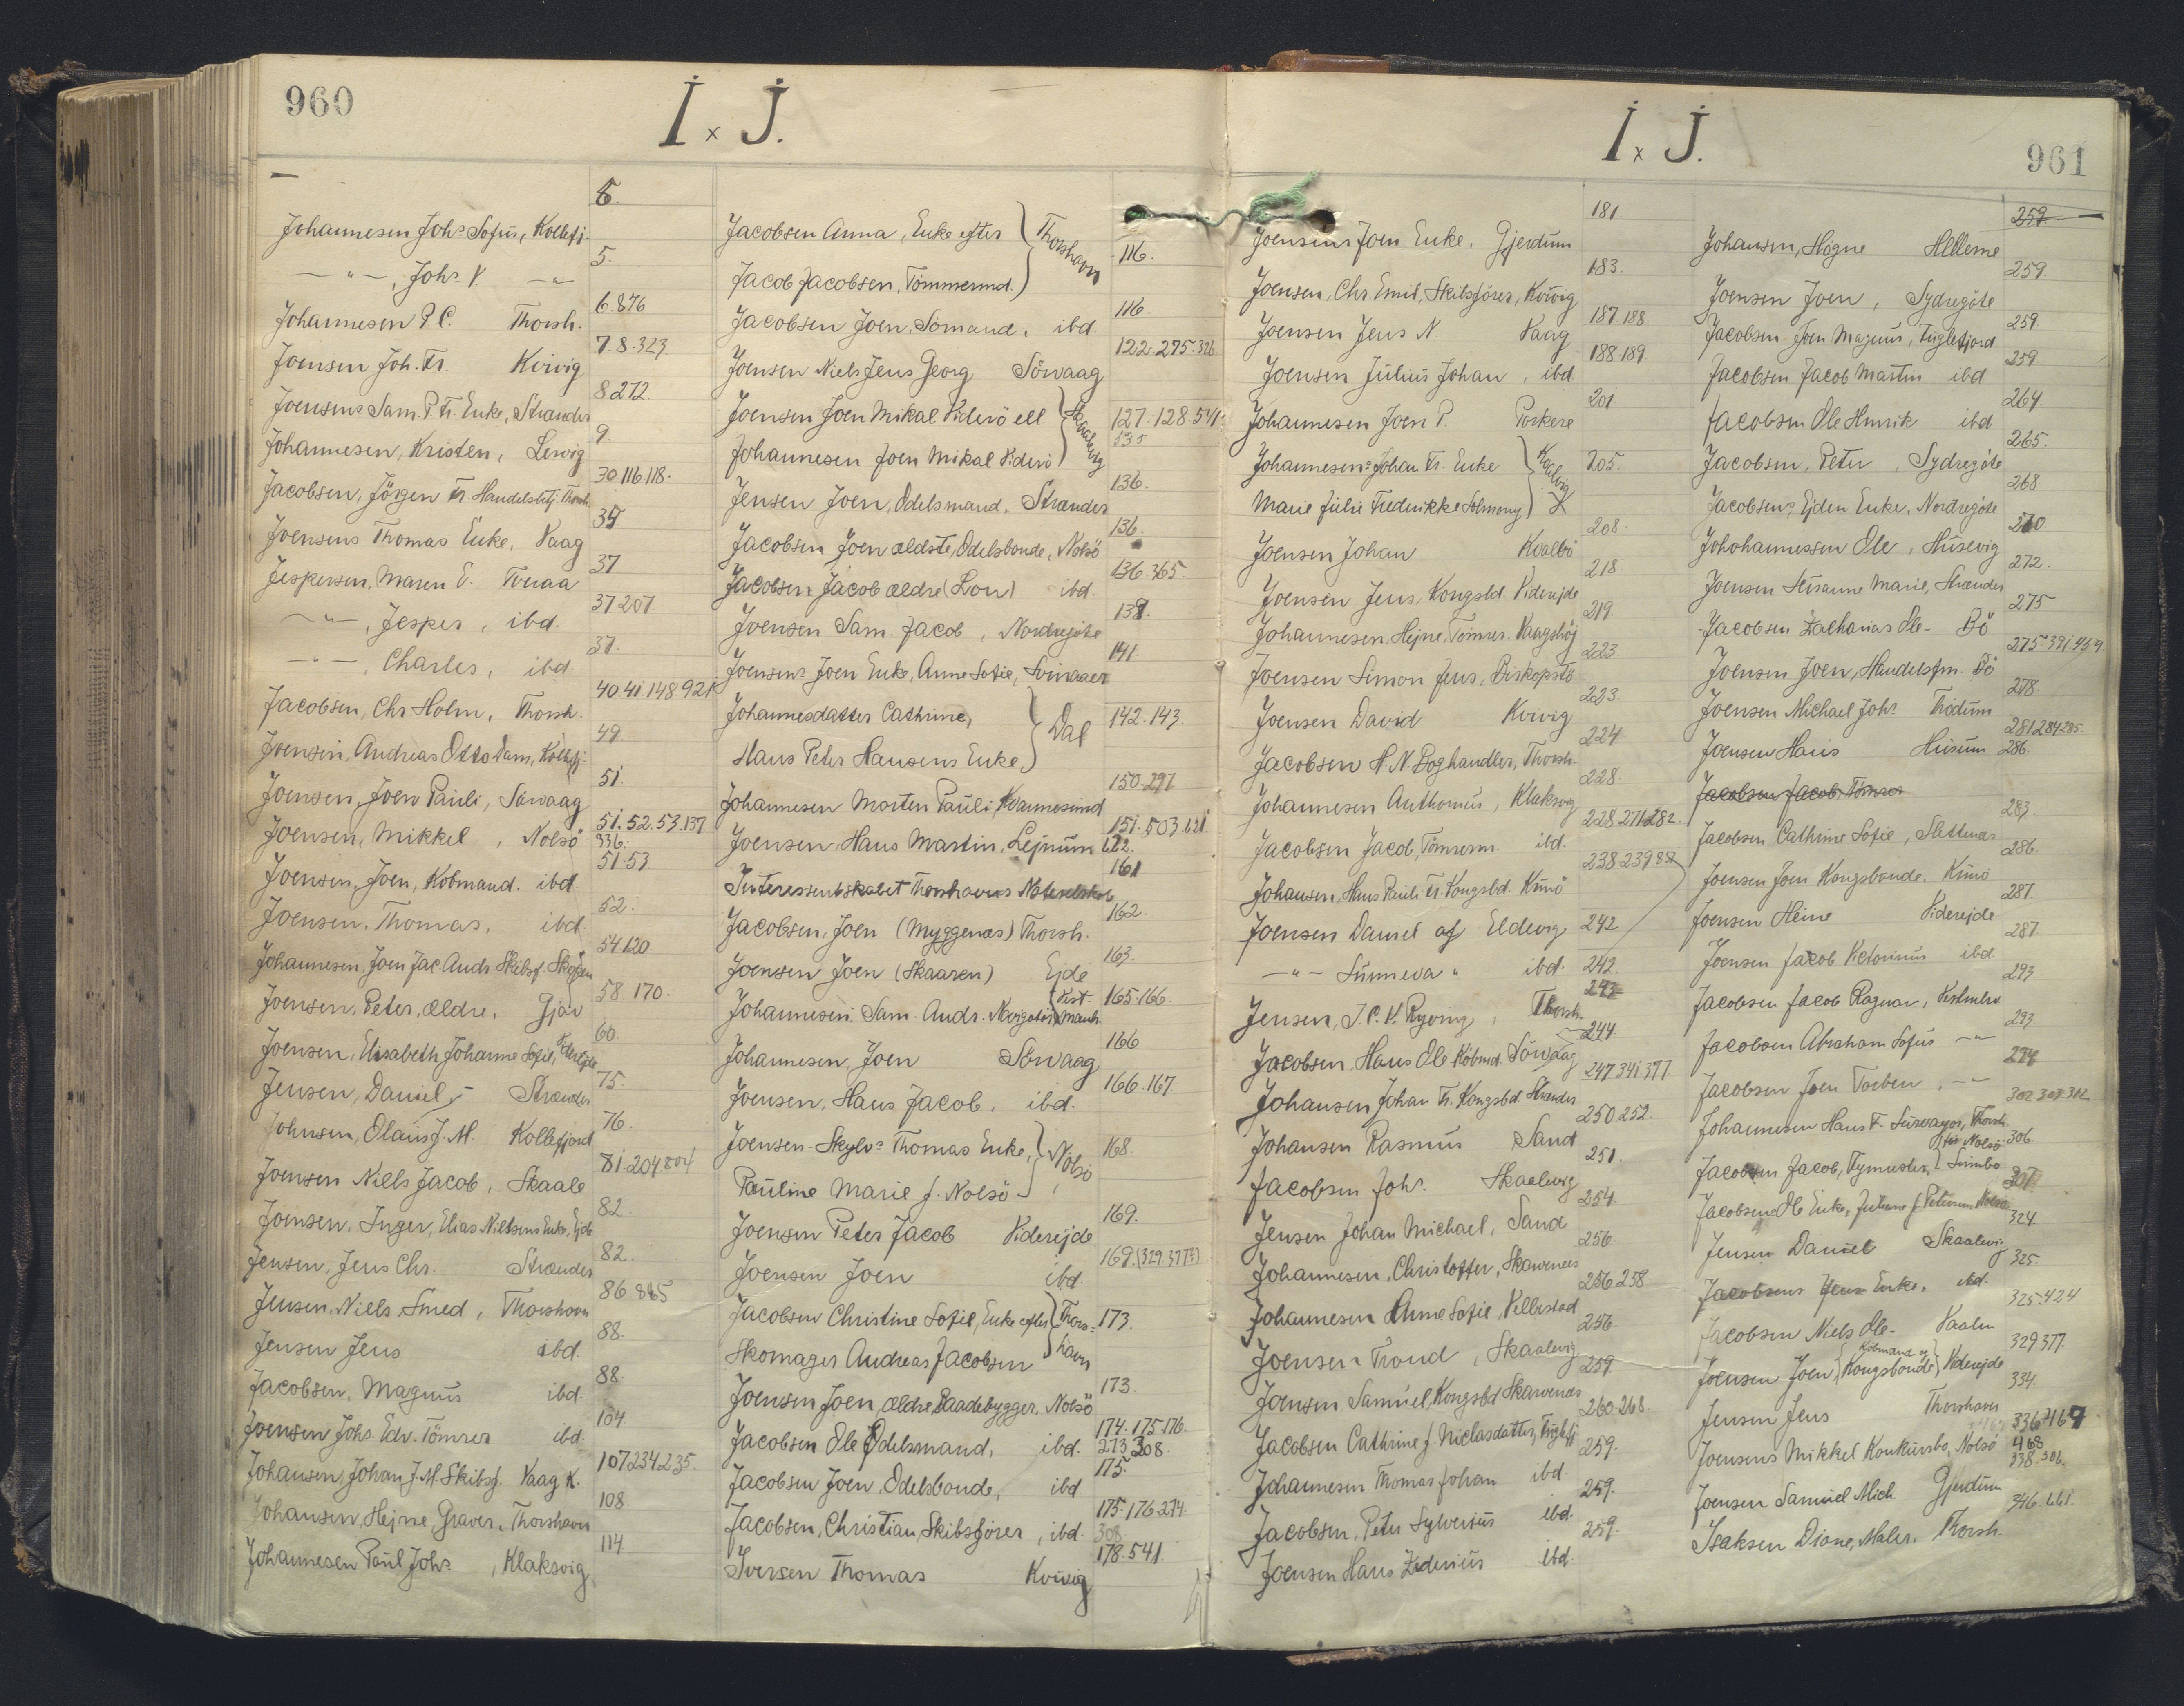 960
I x J.
5.
Johannesen Johs Sofus, Kollefj.
5.
—"—, Johs V. —"—
6.876
Johannesen P. C. Thorsh.
7.8.323
Joensen Joh. Fr. Kvivig
8 272
Joensens Sam. P. Fr. Enke, Strænder
9.
Johannesen, Kristen, Lervig
30.116.118.
Jacobsen, Jörgen Fr. Handelsbetj Thorsh
35
Joensens Thomas Enke, Vaag
37
Jespersen, Maren E. Tveraa
37 207
—"—, Jesper, ibd.
37.
—"—, Charles, ibd.
40 41 148 921
Jacobsen, Chr Holm, Thorsh.
49.
Joensen, Andreas Otto Dam, Kollefj.
51.
Joensen, Joen Pauli, Sörvaag
51. 52. 53. 137
Joensen, Mikkel, Nolsö 336.
51.53
Joensen, Joen, Kobmand. ibd.
52.
Joensen, Thomas, ibd.
54 120
Johannesen, Joen Jac. Andr. Skibsf. Skopen
58. 170.
Joensen, Peter, ældre, Gjov
60.
Joensen, Elisabeth Johanne Sofie, Viderejde
75.
Jensen, Daniel, Strænder
76.
Johnsen, Olaus J. M. Kollefjord
81.204 804
Joensen Niels Jacob, Skaale
82.
Joensen, Inger, Elias Nielsens Enke, Ejde
82.
Jensen, Jens Chr. Strænder
86.885
Jensen, Niels, Smed, Thorshavn
88.
Jensen Jens ibd.
88.
Jacobsen, Magnus ibd.
104
Joensen Johs. Edv. Tömrer ibd.
107 234 235.
Johansen, Johan J. M. Skibsf. Vaag K.
108.
Johansen, Hejne, Graver, Thorshavn
114
Johannesen Poul Johs, Klaksvig
Jacobsen Anna, Enke efter } Thorshavn 116.
Jacob Jacobsen, Tömmermd.
116.
Jacobsen Joen, Sömand, ibd.
122.275.326
Joensen Niels Jens Georg Sörvaag
Joensen Joen Mikal Viderö ell 127.128.541.
Johannesen Joen Mikal Viderö
136.
Jensen Joen, Odelsmand, Strænder
136.
Jacobsen Joen ældste, Odelsbonde, Nolsö
136.365.
Jacobsen Jacob ældre (Lon) ibd.
138.
Joensen Sam. Jacob, Nordregöte
141.
Joensens Joen Enke, Anne Sofie, Svinaaer
Johannesdatter Cathrine, } Dal 142.143.
Hans Peter Hansens Enke,
150.297
Johannesen Morten Pauli, Kvannesund
151.503.621.
Joensen, Hans Martin, Lejnum 622.
161
Interessentskabet Thorshavns
162.
Jacobsen, Joen (Myggenæs) Thorsh.
163.
Joensen Joen (Skaaren) Ejde
165.166.
Johannesen, Sam. Andr. Navigatör, Vestmanh.
166
Johannesen, Joen Sörvaag
166.167.
Joensen, Hans Jacob, ibd.
Joensen-Skylvs Thomas Enke, } Nolsö 168.
Pauline Marie f. Nolsö
169.
Joensen Peter Jacob Viderejde
169.(329.377?)
Joensen Joen ibd.
Jacobsen Christine Sofie, Enke efter } Thorshavn 173.
Skomager Andreas Jacobsen
173.
Joensen Joen, ældre, Baadebygger, Nolsö
174.175.176.
Jacobsen Ole Odelsmand, ibd. 273 308.
175.
Jacobsen Joen, Odelsbonde, ibd.
175.176.274.
Jacobsen, Christian, Skibsförer, ibd. 308
178.541.
Iversen Thomas Kvivig
I x J.
961
181.
Joensens Joen Enke, Gjerdum
183.
Joensen, Chr. Emil, Skibsförer, Kvivig
187.188.
Joensen Jens N Vaag
188.189
Joensen Julius Johan, ibd
201
Johannesen Joen P. Porkere
Johannesens Johan Fr. Enke } 205.
Marie Julie Fredrikke
208.
Joensen Johan Kvalbö
218
Joensen Jens, Kongsbd. Viderejde
219.
Johannesen, Hejne, Tömrer. Vaagshöj
223
Joensen Simon Jens, Biskopstö
223.
Joensen David Kvivig
224
Jacobsen H. N. Boghandler, Thorsh.
228.
Johannesen Anthonius, Klaksvig
228.271.282.
Jacobsen Jacob, Tömrerm. ibd.
238.239 88
Johansen, Hans Pauli Fr. Kongsbd. Kunö
Joensen Daniel af Eldevig 242
—"— Sunneva " ibd. 242.
243
Jensen, J. C. V. Ryving, Thorsh.
244
Jacobsen, Hans Ole Köbmd. Sörvaag
247 341.377
Johansen Johan Fr. Kongsbd. Strænder
250.252.
Johansen Rasmus Sand
251.
Jacobsen Johs. Skaalevig
254
Jensen Johan Michael, Sand
256.
Johannesen, Christoffer, Skarvenæs
256.258.
Johannesen Anne Sofie, Vellerstad
256
Joensen Trond, Skaalevig
259
Joensen Samuel, Kongsbd. Skarvenæs
260.268.
Jacobsen Cathrine f. Niclasdatter, Fuglefj.
259.
Johannesen Thomas Johan ibd.
259.
Jacobsen, Peter Sylverius ibd.
259.
Joensen Hans Zederius ibd.
259
Johansen, Högne Hellerne
259.
Joensen Joen, Sydregöte
259
Jacobsen Joen Magnus, Fuglefjord
259
Jacobsen Jacob Martin ibd
264.
Jacobsen Ole Henrik ibd
265.
Jacobsen, Peter, Sydregöte
268
Jacobsens, Ejden Enke, Nordregöte
270.
Johohannessen Ole, Husevig
272.
Joensen Susanne Marie, Strænder
275
Jacobsen Zacharias Ole- Bö
275 391.459
Joensen Joen, Handelsfm. Bö
278.
Joensen Michael Johs. Trödum
281 284 285.
Joensen Hans Husum 286.
Jacobsen Jacob, Tömrer
283.
Jacobsen Cathrine Sofie, Slettenæs
286.
Joensen Joen Kongsbonde. Kunö
287.
Joensen Heine Viderejde
287
Joensen Jacob Victorinus ibd.
293
Jacobsen Jacob Ragnar,
293
Jacobsen Abraham Sofus —"—
294
Jacobsen Joen Torben, —"—
302.307.312
Johannesen Hans F. Survayor, Thorsh.
306
Jacobsen Jacob, Fyrmester, } fra Nolsö Sumbö
307
Jacobsens Ole Enke, Juliane f. Petersen Nolsö
324.
Jensen Daniel Skaalevig
325.
Jacobsens Jens Enke, ibd.
325.424
Jacobsen Niels Ole- Vaalen
329.377.
Joensen Joen, Köbmand og Kongsbonde, Viderejde
334
Jensen Jens Thorshavn
336 467
Joensens Mikkel Konkursbo, Nolsö 468
338.506.
Joensen Samuel Mich. Gjerdum
346.661.
Isaksen Diane, Maler. Thorsh.